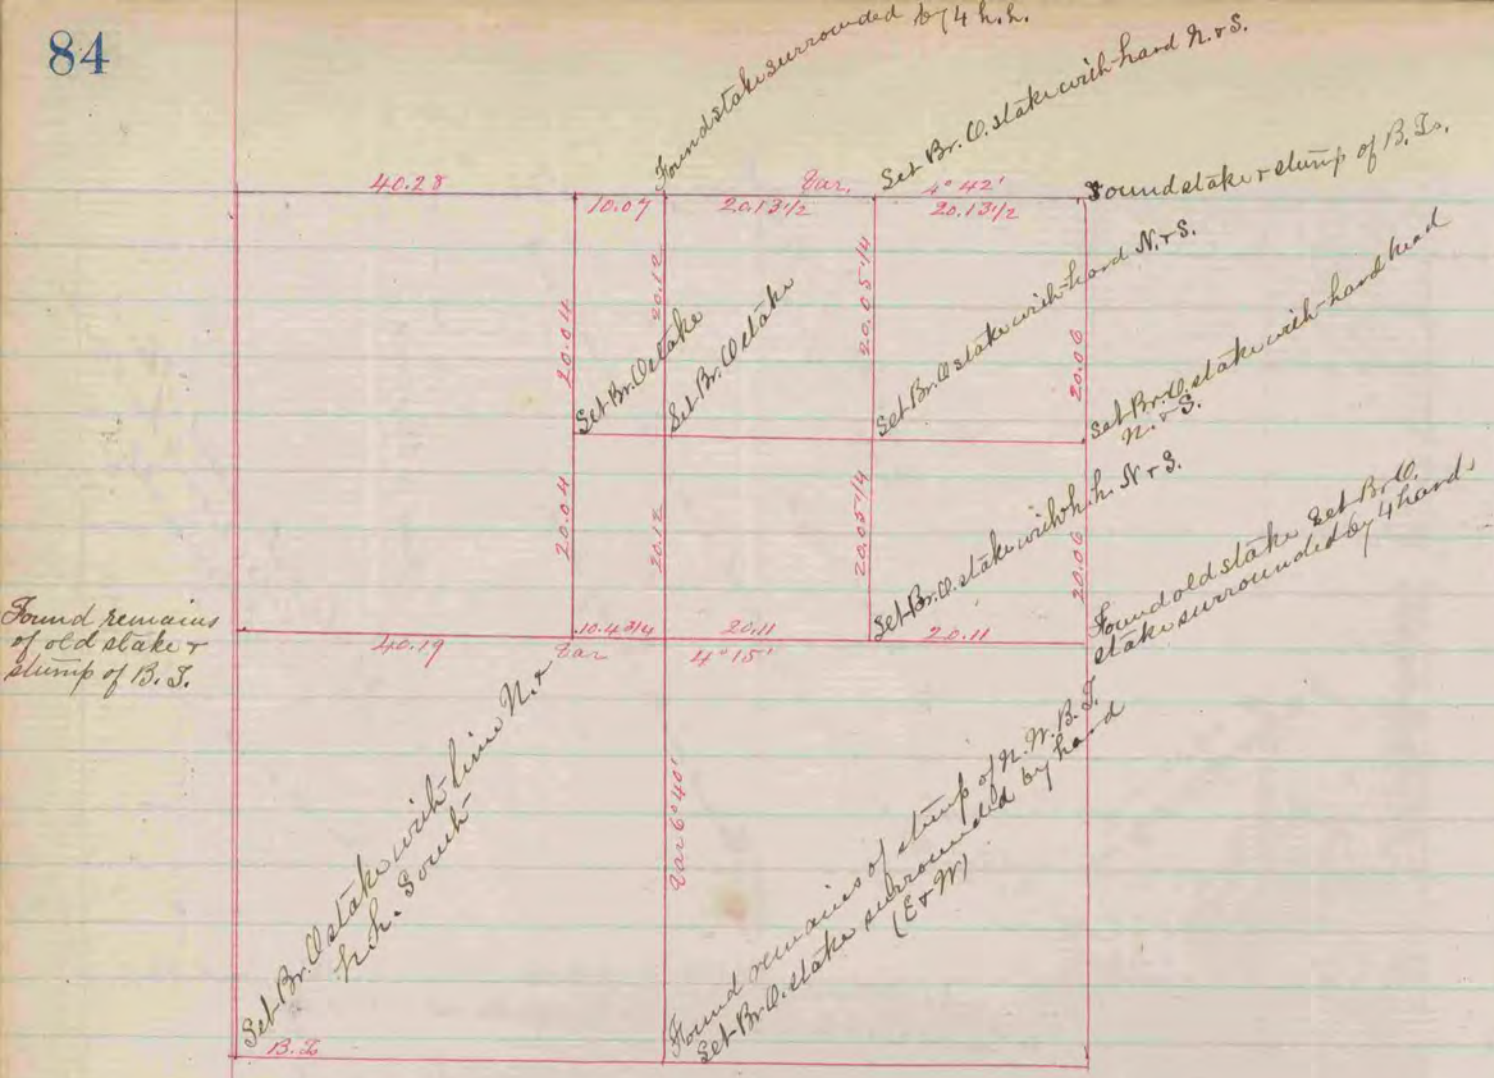 84
Found stake surrounded by 4 h.h.
Set Br. O. stake with hard N. & S.
40.28
Var. 4° 42'
Found stake & stump of B. Ts.
10.07
20.13 1/2
20.13 1/2
20.04
20.12
20.05 1/4
20.06
Set Br. O stake
Set Br. O stake
Set Br. O stake with hard N. & S.
Set Br. O. stake with hard head
N. & S.
20.04
20.12
20.05 1/4
20.06
Set Br. O. stake with h.h. N & S.
Found old stake Set Br. O.
stake surrounded by 4 hards
Found remains
of old stake &
stump of B. T.
40.19
10.4 3/4
20.11
20.11
Var 4° 15'
Var 6° 40'
Set Br. O stake with line N. &
h.h. South
Found remains of stump of N. W. B. T.
Set Br. O. stake surrounded by hard
(E & W)
B. T.